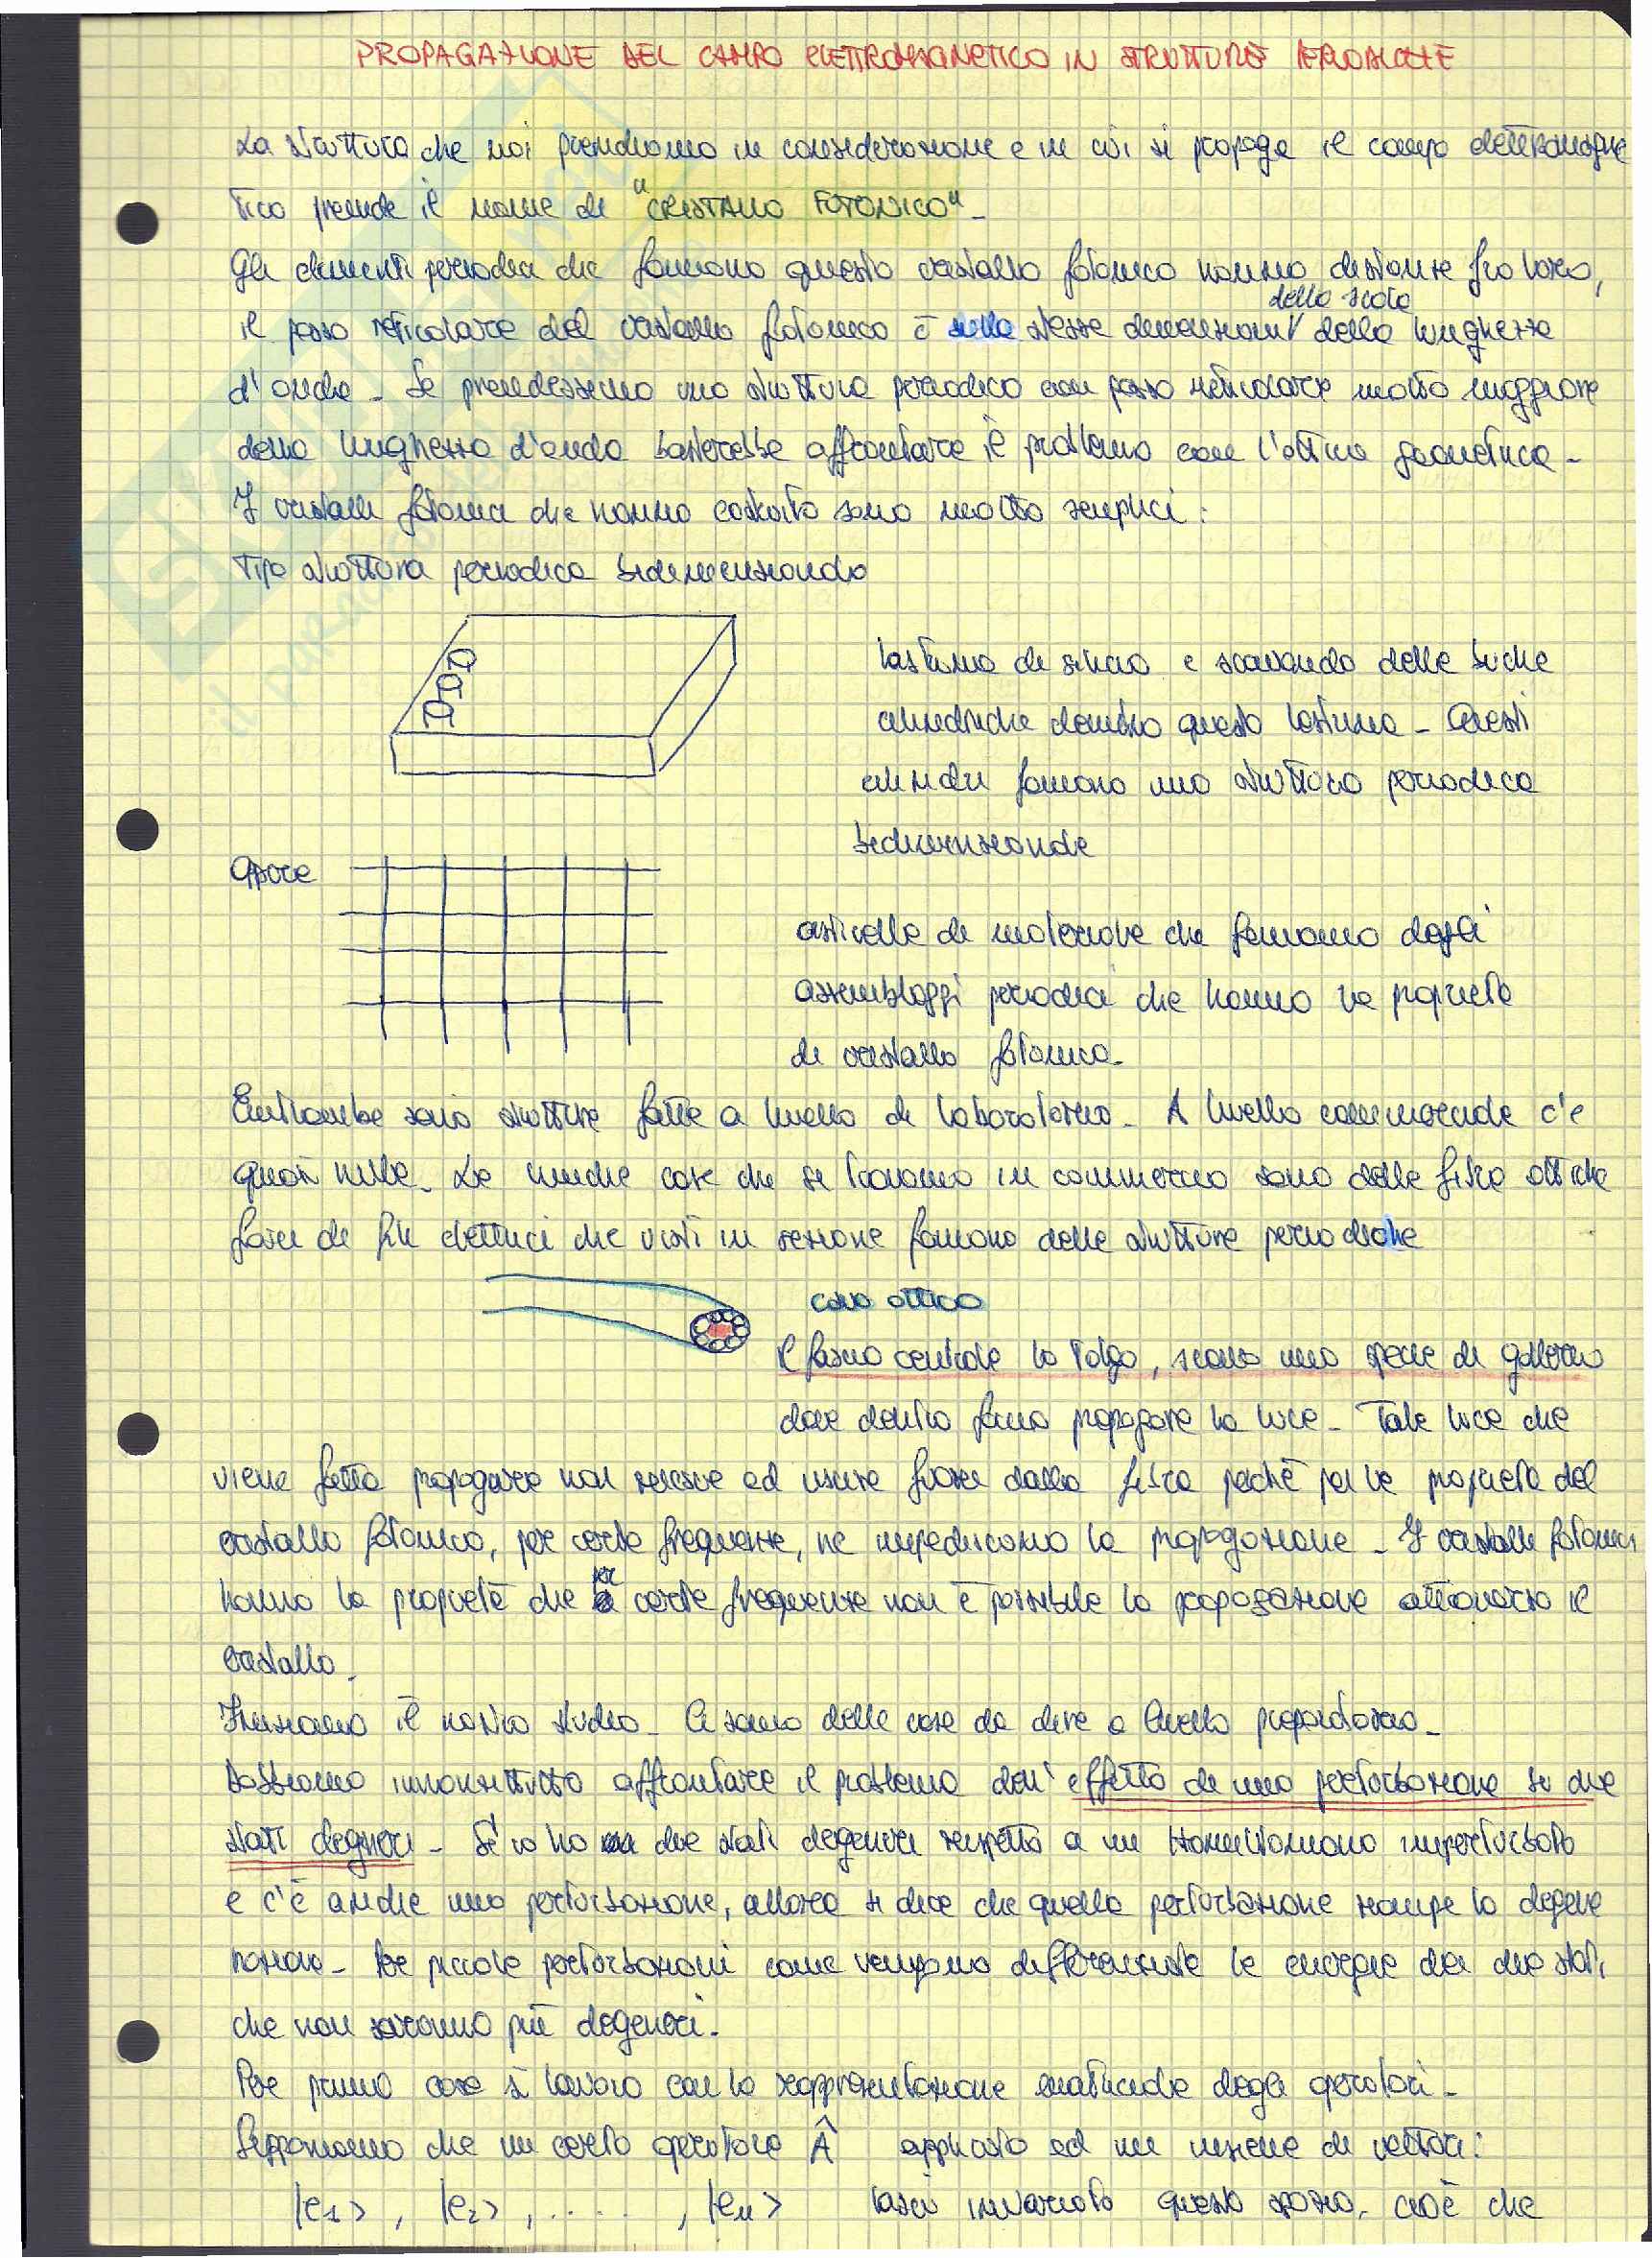 PROPAGAZIONE DEL CAMPO ELETTROMAGNETICO IN STRUTTURE PERIODICHE
La struttura che noi prendiamo in considerazione e in cui si propaga il campo elettromagne
tico prende il nome di "CRISTALLO FOTONICO" -
Gli elementi periodici che formano questo cristallo fotonico hanno distanze fra loro,
della scala
il passo reticolare del cristallo fotonico è sulle stesse dimensioni della lunghezza
d'onda - Se prendessimo una struttura periodica con passo reticolare molto maggiore
della lunghezza d'onda basterebbe affrontare il problema con l'ottica geometrica -
I cristalli fotonici che hanno costruito sono molto semplici:
Tipo struttura periodica bidimensionale
lastrina di silicio e scavando delle buche
cilindriche dentro questa lastrina - Questi
cilindri formano una struttura periodica
bidimensionale
Oppure
asticelle di materiale che formano degli
assemblaggi periodici che hanno le proprietà
di cristallo fotonico -
Entrambe sono strutture fatte a livello di laboratorio - A livello commerciale c'è
quasi nulla - Le uniche cose che si trovano in commercio sono delle fibre ottiche
fasci di fili dielettrici che visti in sezione formano delle strutture periodiche
cavo ottico
Il fascio centrale lo tolgo, scavo una specie di galleria
dove dentro faccio propagare la luce - Tale luce che
viene fatta propagare non riesce ad uscire fuori dalla fibra perchè per le proprietà del
cristallo fotonico, per certe frequenze, ne impediscono la propagazione - I cristalli fotonici
hanno la proprietà che per certe frequenze non è possibile la propagazione attraverso il
cristallo.
Iniziamo il nostro studio - Ci sono delle cose da dire a livello propedeutico -
Dobbiamo innanzitutto affrontare il problema dell'effetto di una perturbazione su due
stati degeneri - Se io ho due stati degeneri rispetto a un Hamiltoniano imperturbato
e c'è anche una perturbazione, allora si dice che quella perturbazione rompe la degene
razione - Per piccole perturbazioni come vengono differenziate le energie dei due stati,
che non saranno più degeneri.
Per prima cosa si lavora con la rappresentazione matriciale degli operatori -
Supponiamo che un certo operatore Â applicato ad un insieme di vettori:
|e₁> , |e₂> , ..... , |eₙ> lasci invariato questo spazio, cioè che